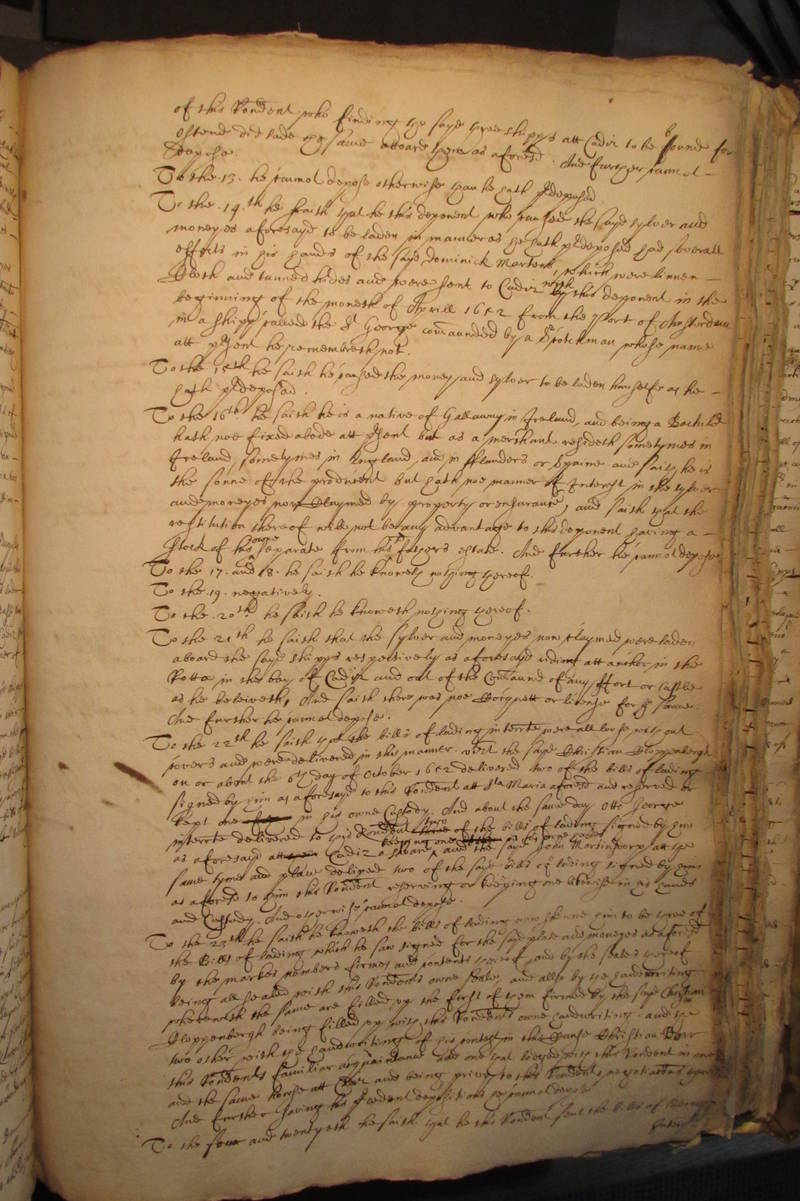 of this Rendent who finding the sayd three shipps att Cadiz to be bound for
Ostend did lade the same aboard them as aforesd. And further cannot
depose.
To the .13. he cannot depose otherwise than he hath predeposed
To the .14.th he saith that he this deponent who caused the sayd sylver and
moneyes aforesayd to be laden in manner as he hath predeposed had severall
effects in his hands of the sayd Dominick Martin, which were linnen
Cloth and tanned hides and were sent to Cadiz with this deponent in the
beginning of the moneth of Aprill 1652 from the Port of Amsterdam
in a shipp called the St George commaunded by a Scotchman whose name
att present he remembreth not.
To the 15th he saith he caused the money and sylver to be laden himselfe as he
hath predeposed.
To the 16th he saith he is a native of Gallaway in Ireland, and being a Bachelor
hath noe fixed abode att present but as a merchant resideth sometymes in
Ireland sometymes in England, and in fflanders or Spaine and saith he is
the sonne of the producent but hath noe manner of Interest in the sylver
and moneyes now claymed by property or ensurance, and saith that the
restitution thereof will not be any advantage to this deponent having a
stock of his owne separate from his fathers estate. And further he cannot depose
To the 17. and 18. he saith he knoweth nothing thereof.
To the .19. negatively.
To the .20th he saith he knoweth nothing thereof.
To the 21th he saith that the sylver and moneyes now claymed were laden
aboard the sayd shipps respectively as aforesayd riding att anchor in the
Rotta in the bay of Cadiz and out of the Commaund of any ffort or Castle
as he beleiveth, And saith there was noe or license for the same.
And further he cannot depose.
To the 22th he saith that the bills of lading interrate were all loose without
covers and were delivered in this manner. vizt the sayd Christian Cloppenbergh
on or about the 6th day of October 1652 delivered two of the bills of lading
signed by him as aforesayd to this Rendent att Sta Maria aforesd and reserved or
kept one in his owne Custody. And about the same day Otto George
interrate delivered to this Rendent two of the bills of lading signed by him
as aforesayd att Cadiz aforesd keeping one and the sayd John Martinson att the
same tyme and place delivered two of the sayd bills of lading signed by him
as aforesd to him this Rendent reserving or keeping one likewise in his hands
and Custody. And otherwise cannot depose.
To the 23th he saith he knoweth the bills of lading now shewne him to be three of
the Bills of lading which he saw signed for the sayd plate and moneyes as aforesd
by the markes numbers firmes and contents thereof, and by the seales thereof
being all sealed with this Rendents owne seale, and allso by the handwriting
wherewith the same are filled up the first of them firmed by the sayd Christian
Cloppenbergh being filled up with this Rendents owne handwriting. and the
two other with the handwriting of his in this Cause Christian
this Rendents familiar acquaintance and one that lodged with this Rendent in one
and the same house att and being privy to this Rendents negotiations there
And further saving his precedent depositions he cannot depose
To the four and twentyeth he saith that he this Rendent sent the bills of lading